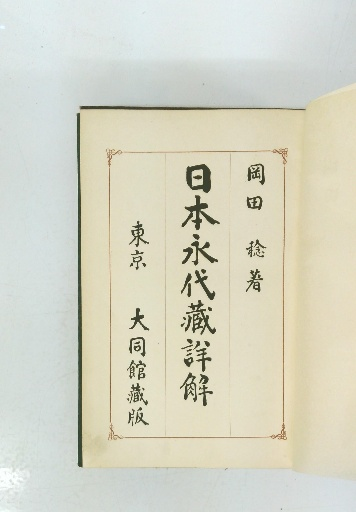 岡田 稔著
日本永代藏詳解
東京 大同館藏版